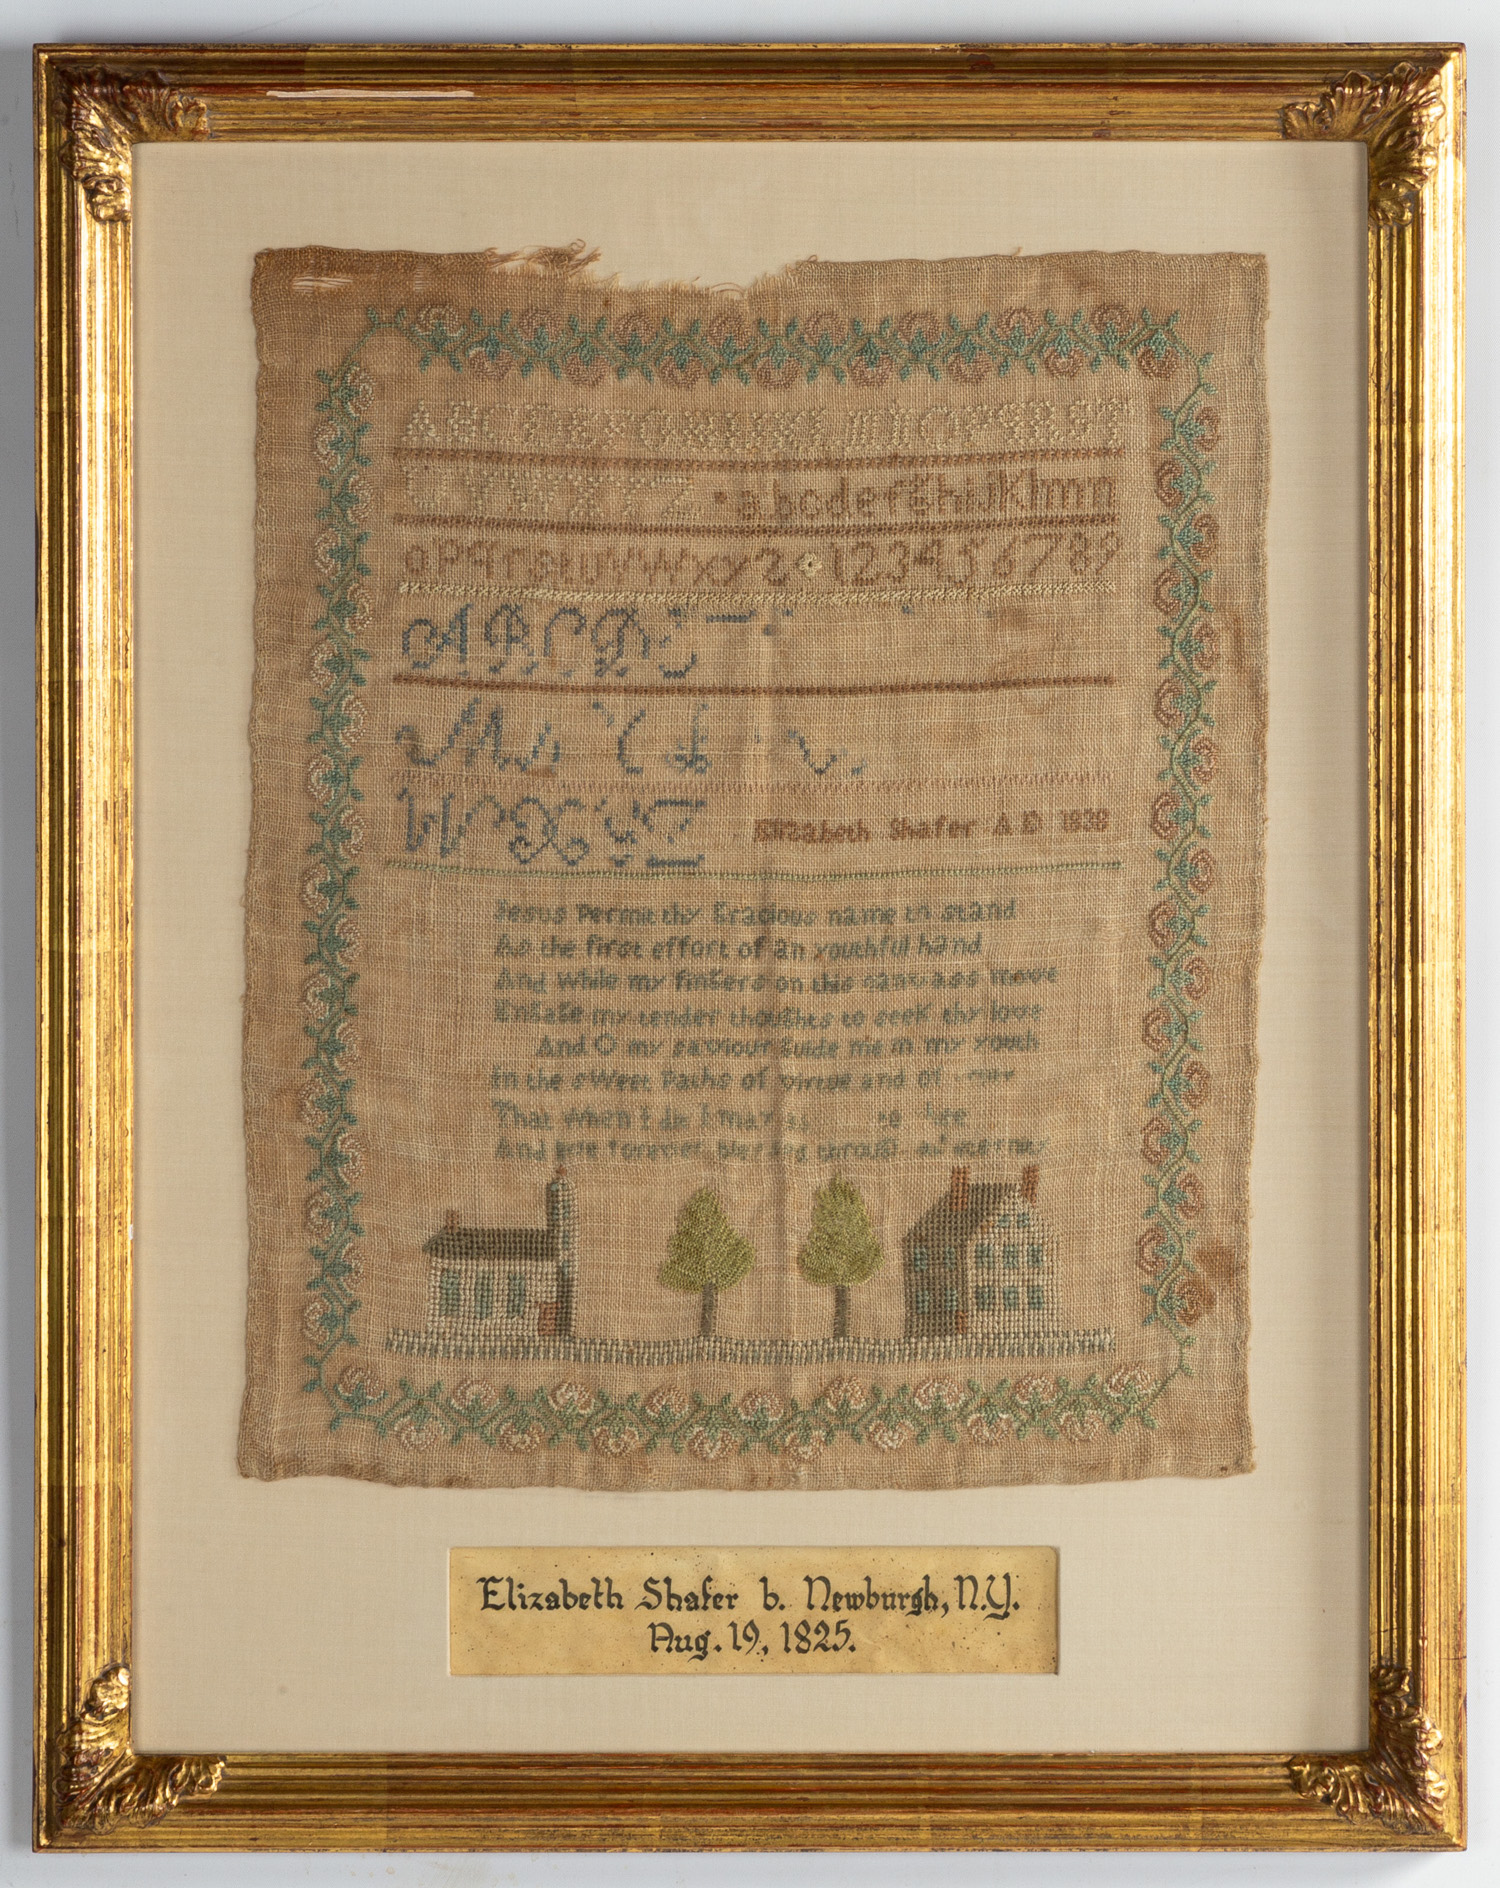 ABCDEFGHIJKLMNOPQRST
UVWXYZ abcdefghijklmn
opqrstuvwxyz 123456789
ABCD
M
WXYZ Elizabeth Shafer AD
Jesus permit thy Gracious name to stand
As the first effort of an youthful hand
And while my fingers on this canvass move
Engage my tender thoughts to seek thy love
And O my saviour guide me in my youth
In the sweet Paths of virtue and of
That when I to
And forever through
Elizabeth Shafer b. Newburgh, N.Y.
Aug. 19, 1825.